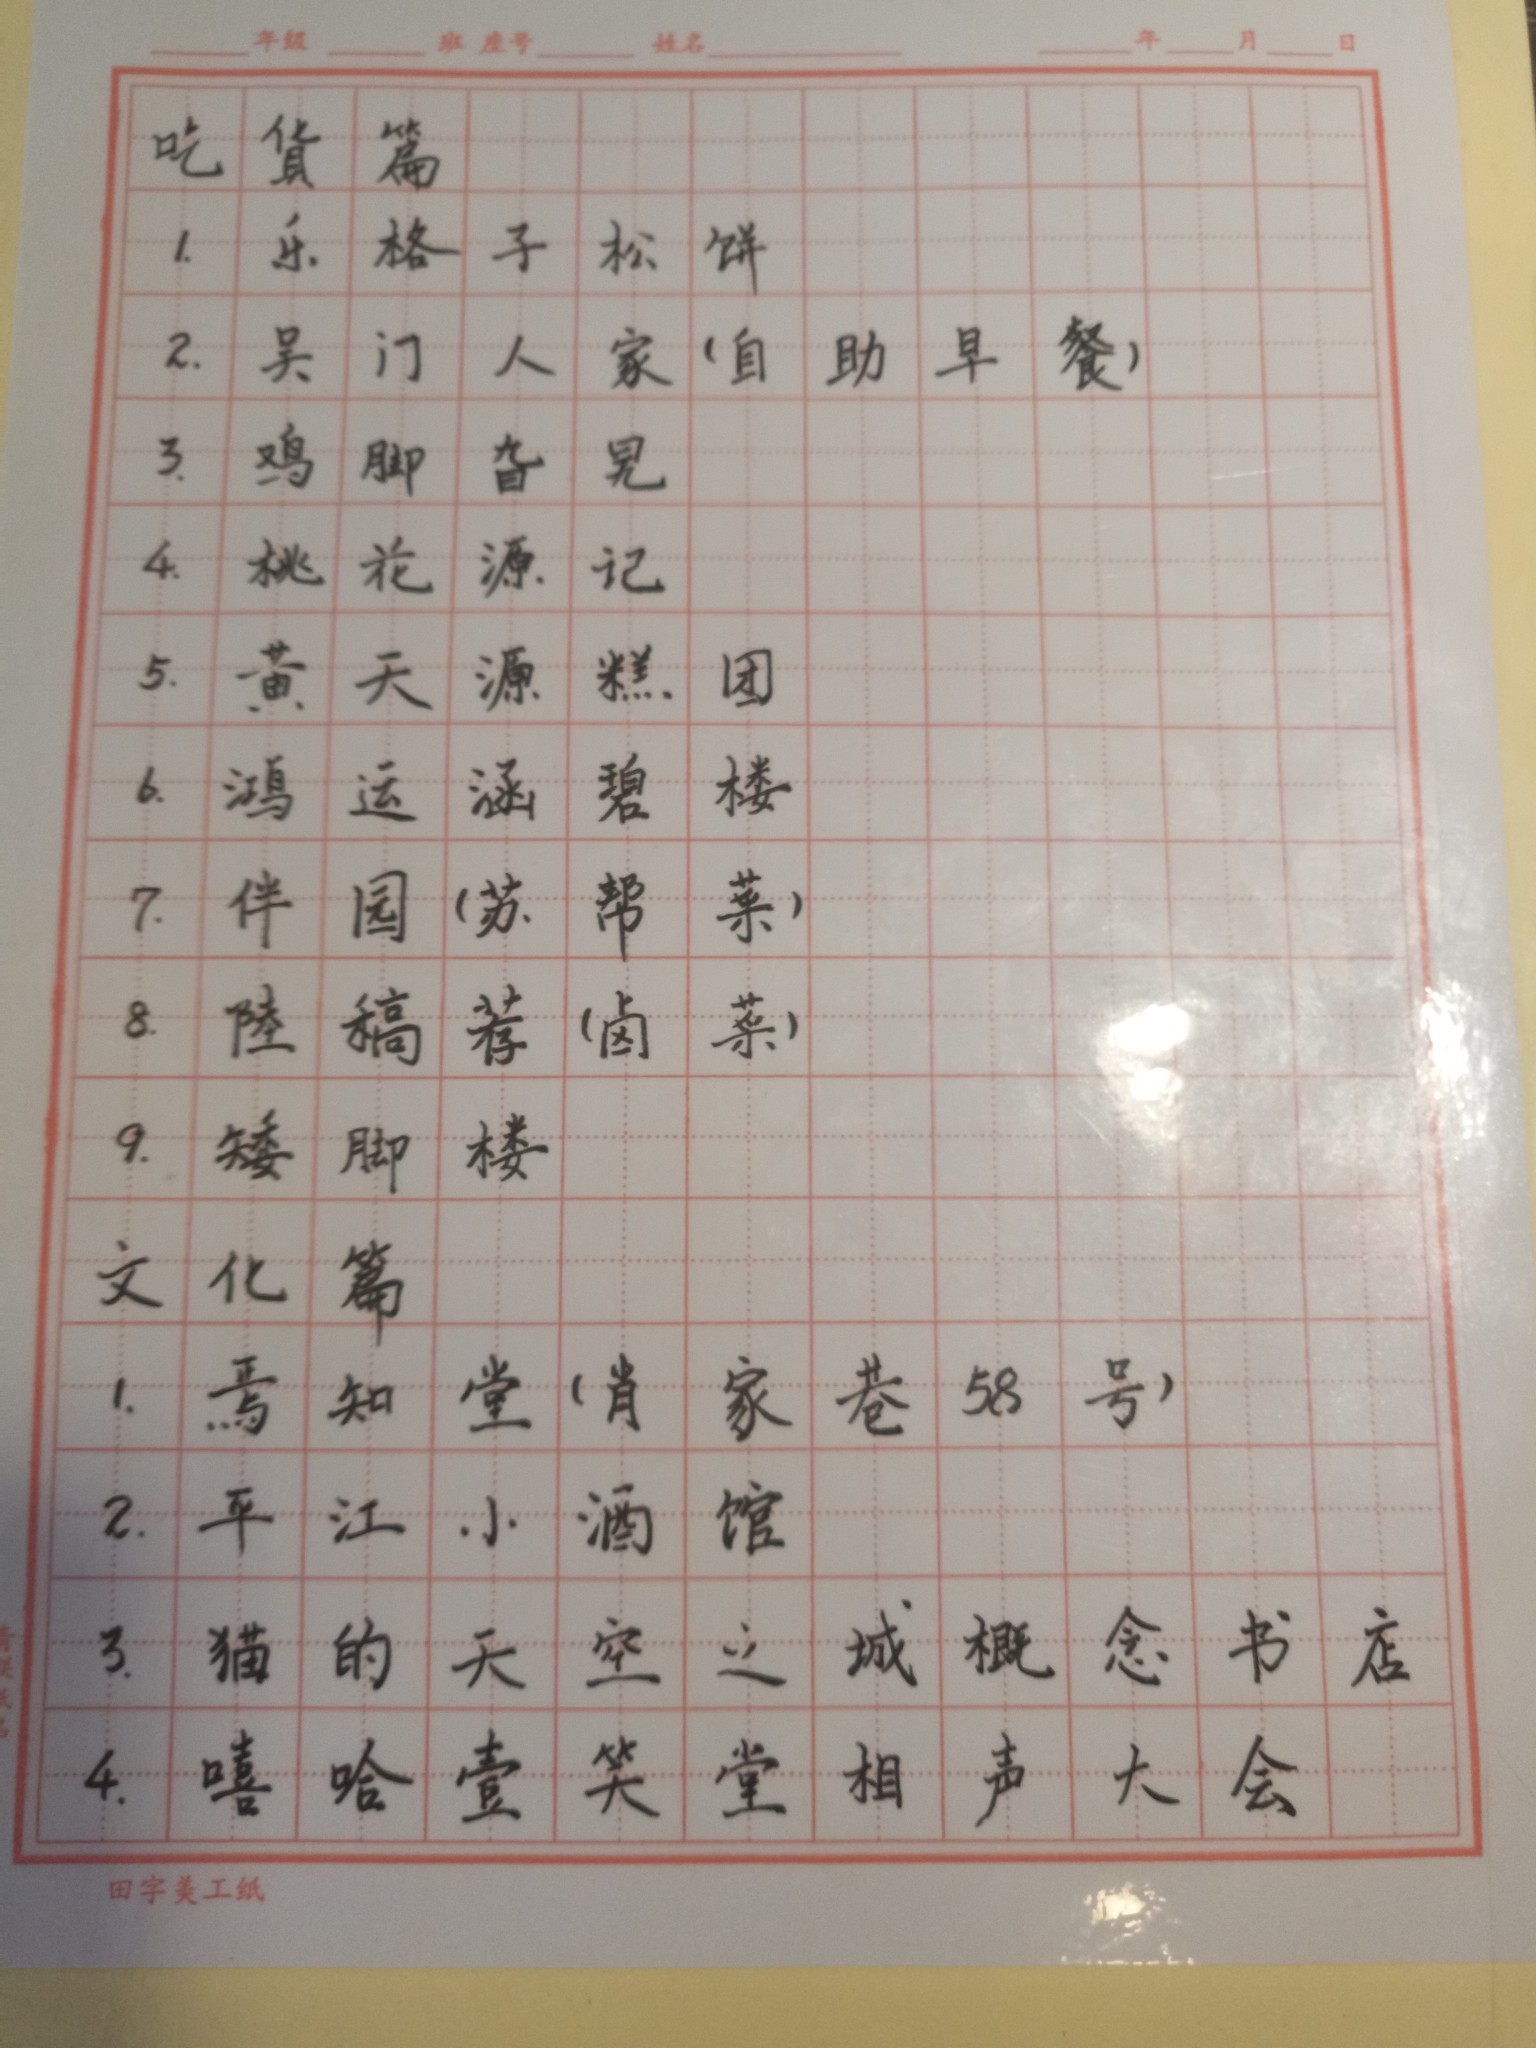 年级 班 座号 姓名 年 月 日
吃货篇
1. 乐格子松饼
2. 吴门人家(自助早餐)
3. 鸡脚旮旯
4. 桃花源记
5. 黄天源糕团
6. 鸿运涵碧楼
7. 伴园(苏帮菜)
8. 陸稿荐(卤菜)
9. 矮脚楼
文化篇
1. 焉知堂(肖家巷58号)
2. 平江小酒馆
3. 猫的天空之城概念书店
4. 嘻哈壹笑堂相声大会
田字美工纸